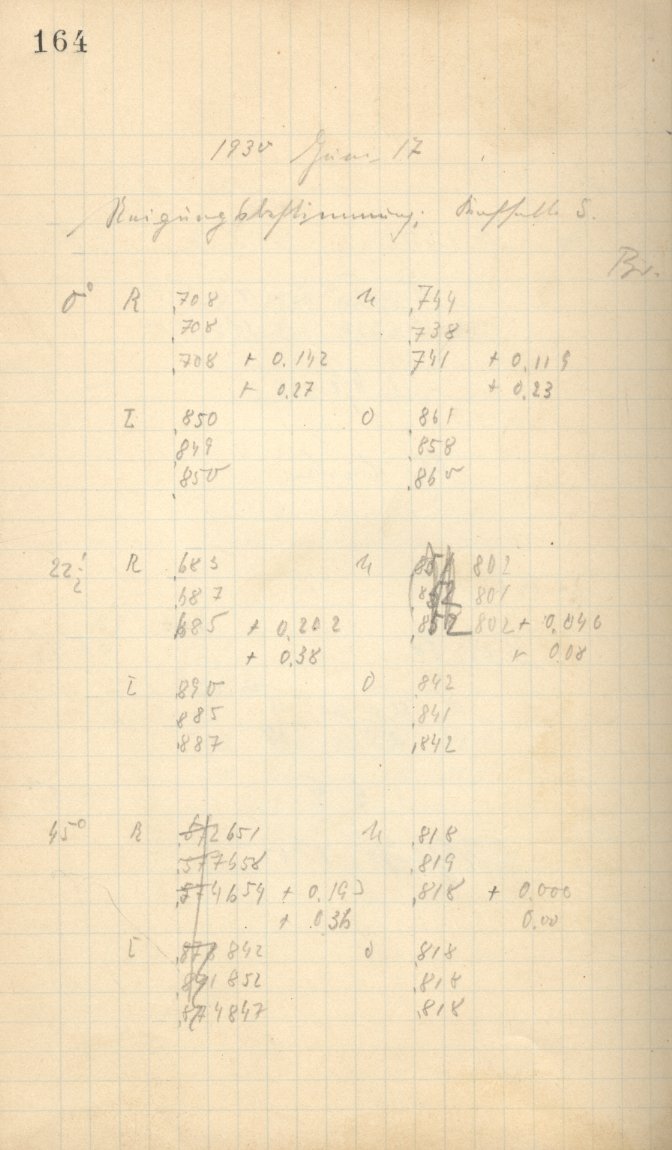 164
1930 Juni 17
Neigungsbestimmung, 5.
Br.
0° R ,708 U ,744
,708 ,738
,708 + 0.142 741 + 0.119
+ 0.27 + 0.23
L ,850 O ,861
,849 ,858
,850 ,860
22½ R ,683 U 851 802
,687 852 801
,685 + 0.202 852 802 + 0.040
+ 0.38 + 0.08
L ,890 O ,842
,885 ,841
,887 ,842
45° R 651 U ,818
658 ,819
654 + 0.193 ,818 + 0.000
+ 0.36 0.00
L 878 842 O ,818
891 852 ,818
874 847 ,818